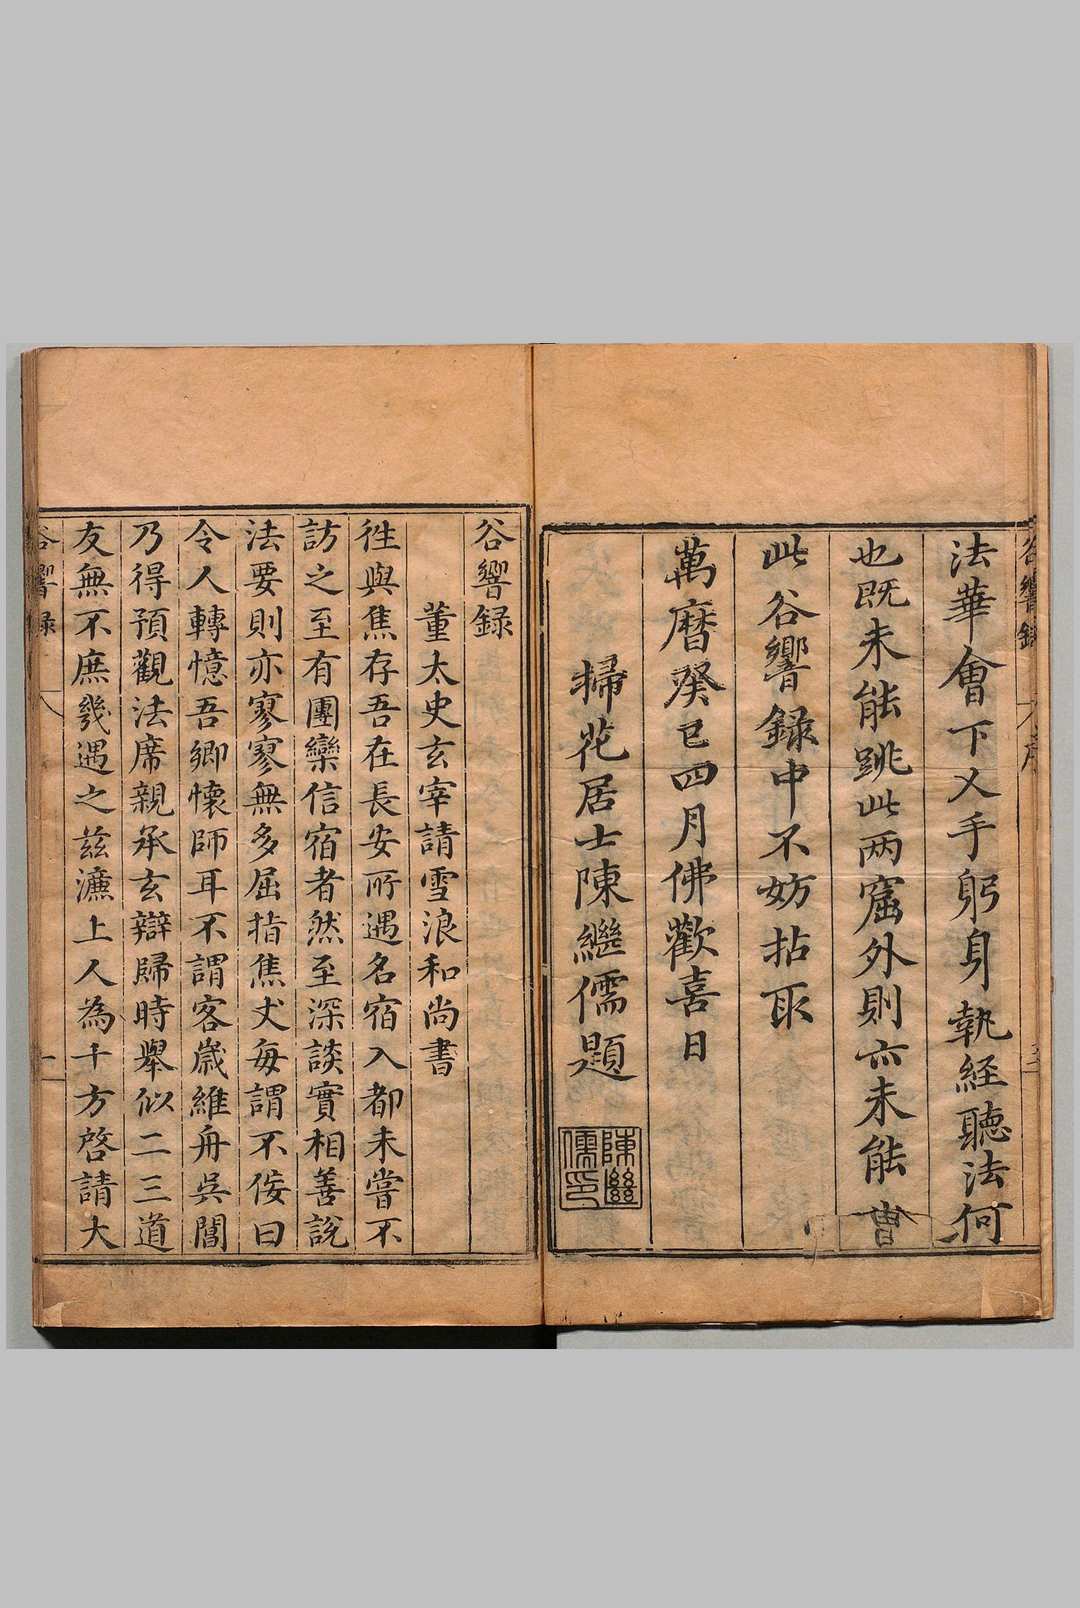 法華會下叉手躬身執經聽法何
也既未能跳此两窟外則亦未能曺
此谷響録中不妨拈取
萬暦癸巳四月佛歡喜日
掃花居士陳繼儒題
陳繼儒印
谷響録
董太史玄宰請雪浪和尚書
徃與焦存吾在長安所遇名宿入都未嘗不
訪之至有團欒信宿者然至深談實相善説
法要則亦寥寥無多屈指焦丈每謂不侫曰
令人轉憶吾鄉懷師耳不謂客歳維舟吳閶
乃得預觀法席親承玄辯歸時舉似二三道
友無不庶幾遇之兹濂上人為十方啓請大
谷響録